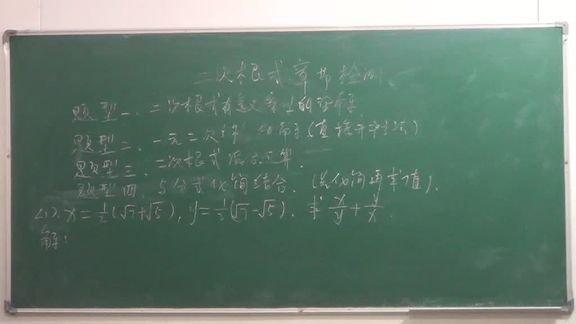 二次根式章节检测
题型一、二次根式有意义
题型二、一元二次 (直接开平方法)
题型三、二次根式混合运算.
题型四 与分式化简结合. (先化简再求值).
(1). x=½(√7+√5), y=½(√7-√5). 求 x/y + y/x
解: